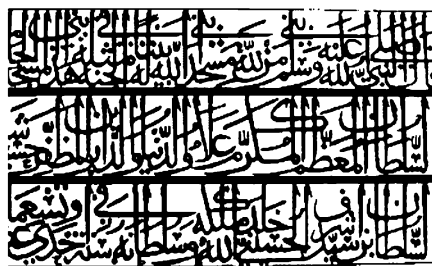 النبي صلى الله عليه وسلم من بنى لله مسجدا بنى الله له بيتا في الجنة مثله بنى هذا المسجد
السلطان المعظم المكرم علاء الدنيا والدين ابو المظفر
السلطان بن سيد اشرف الحسيني خلد الله ملكه وسلطانه في سنة احدى